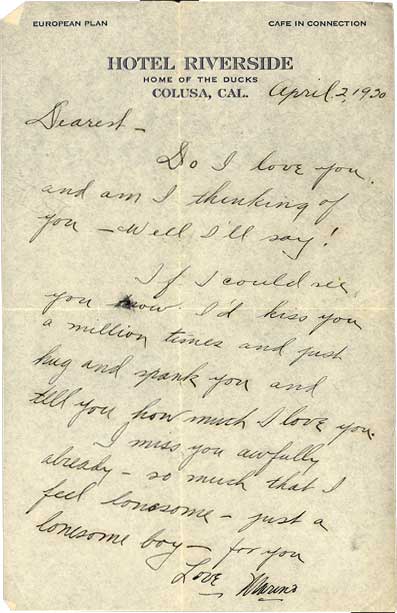 EUROPEAN PLAN
CAFE IN CONNECTION
HOTEL RIVERSIDE
HOME OF THE DUCKS
COLUSA, CAL.
April 2, 1930
Dearest —
Do I love you,
and am I thinking of
you — Well I'll say!
If I could see
you now. I'd kiss you
a million times and just
hug and spank you and
tell you how much I love you.
I miss you awfully
already — so much that I
feel lonesome — just a
lonesome boy — for you
Love